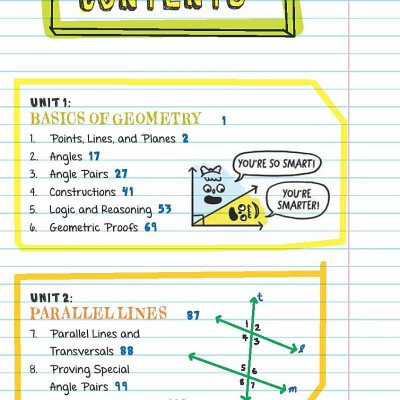 CONTENTS
UNIT 1:
BASICS OF GEOMETRY 1
1. Points, Lines, and Planes 2
2. Angles 17
3. Angle Pairs 27
4. Constructions 41
5. Logic and Reasoning 53
6. Geometric Proofs 69
YOU'RE SO SMART!
YOU'RE
SMARTER!
UNIT 2:
PARALLEL LINES 87
7. Parallel Lines and
Transversals 88
8. Proving Special
Angle Pairs 99
t
1 2
4 3
l
5 6
8 7
m